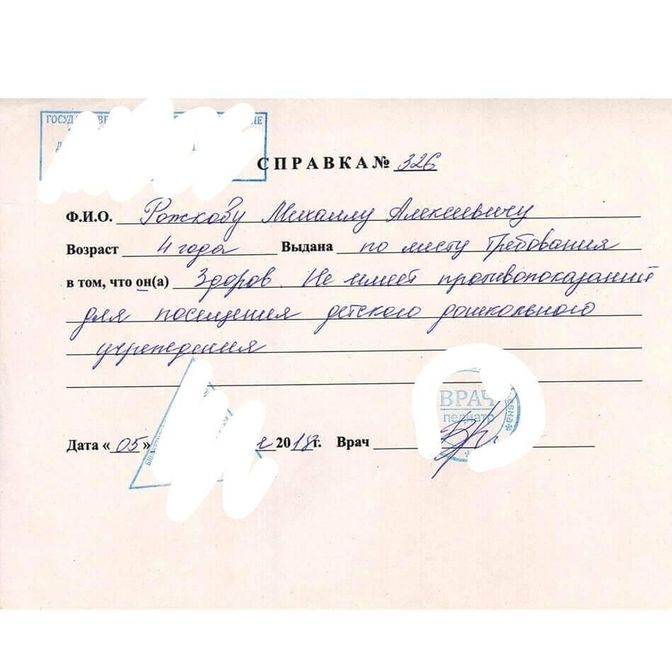 СПРАВКА № 326
Ф.И.О. Рожкову Михаилу Алексеевичу
Возраст 4 года Выдана по месту требования
в том, что он(а) Здоров. Не имеет противопоказаний
для посещения детского дошкольного
учреждения
ВРАЧ
педиатр
Дата «05» 2018г. Врач